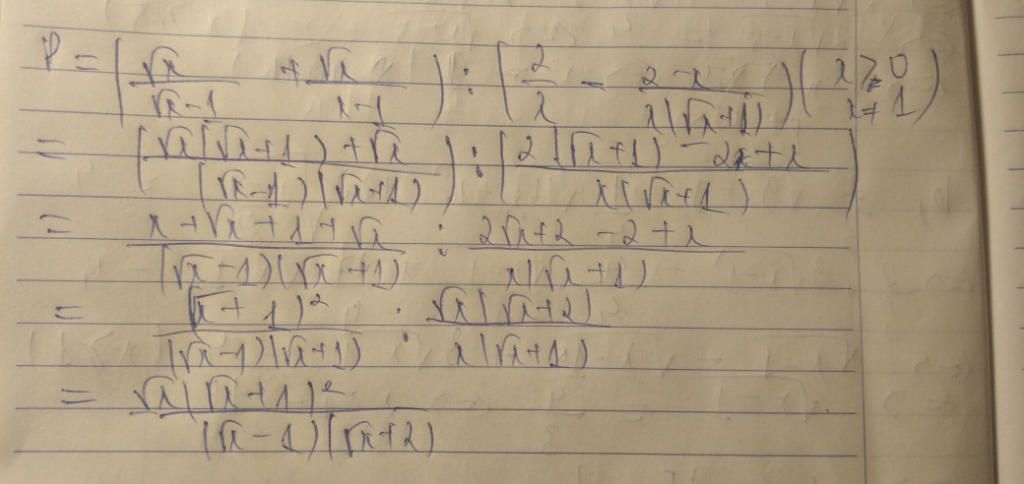 P = (√x/(√x-1) + √x/(x-1)) : (2/x - (2-x)/(x(√x+1))) (x ≥ 0 x ≠ 1)
= ((√x(√x+1)+√x)/((√x-1)(√x+1))) : ((2(√x+1) - 2x+x)/(x(√x+1)))
= (x+√x+1+√x)/((√x-1)(√x+1)) : (2√x+2-2+x)/(x(√x+1))
= (√x+1)²/((√x-1)(√x+1)) : √x(√x+2)/(x(√x+1))
= √x(√x+1)²/((√x-1)(√x+2))